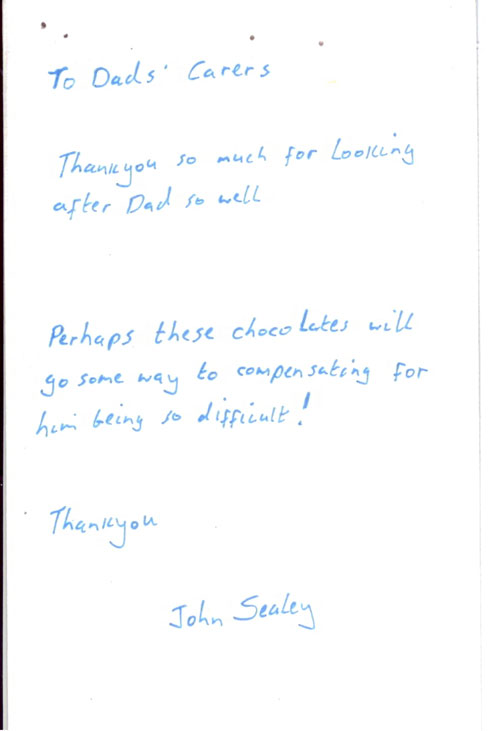 To Dads' Carers
Thankyou so much for Looking
after Dad so well
Perhaps these chocolates will
go some way to compensating for
him being so difficult!
Thankyou
John Sealey